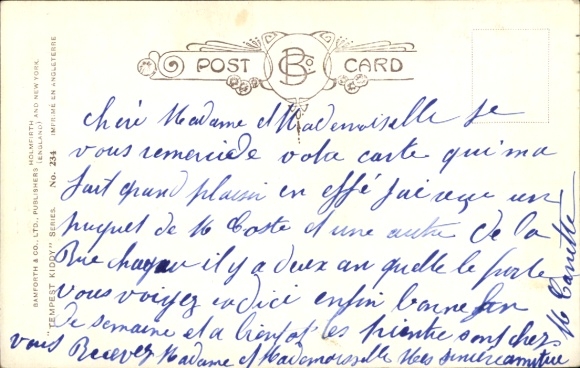 POST CARD
B Co.
BAMFORTH & CO., LTD., PUBLISHERS HOLMFIRTH
(ENGLAND) AND NEW YORK.
"TEMPEST KIDDY" SERIES. No. 234 IMPRIMÉ EN ANGLETERRE
cheré Madame et Mademoiselle Je
vous remercie de votre carte qui ma
fait grand plaisir en effé Jai reçue un
paquet de M Coste et une autre de la
Rue il y a deux an quelle le porte
vous voiyez enfin bonne fin
de semaine et a bientot les sont chers
vous Recevez Madame et Mademoiselle Mes sincère amitie
M